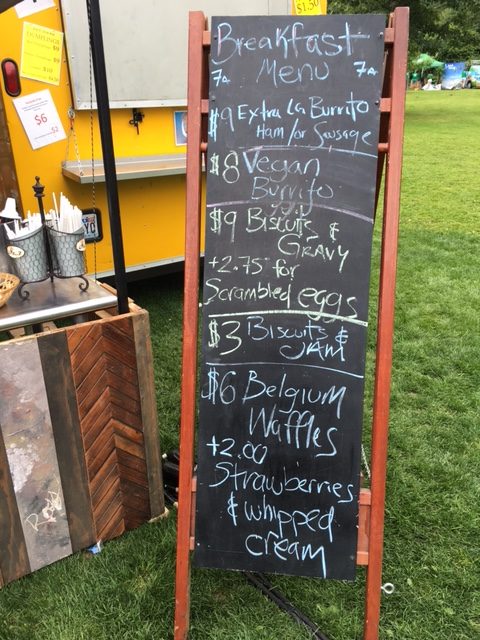 $1.50
$6
Breakfast
7a Menu 7a
$9 Extra La Burrito
Ham/or Sausage
$8 Vegan
Burrito
$9 Biscuits &
Gravy
+2.75 for
Scrambled eggs
$3 Biscuits &
JAM
$6 Belgium
Waffles
+2.00
Strawberries
& whipped
cream